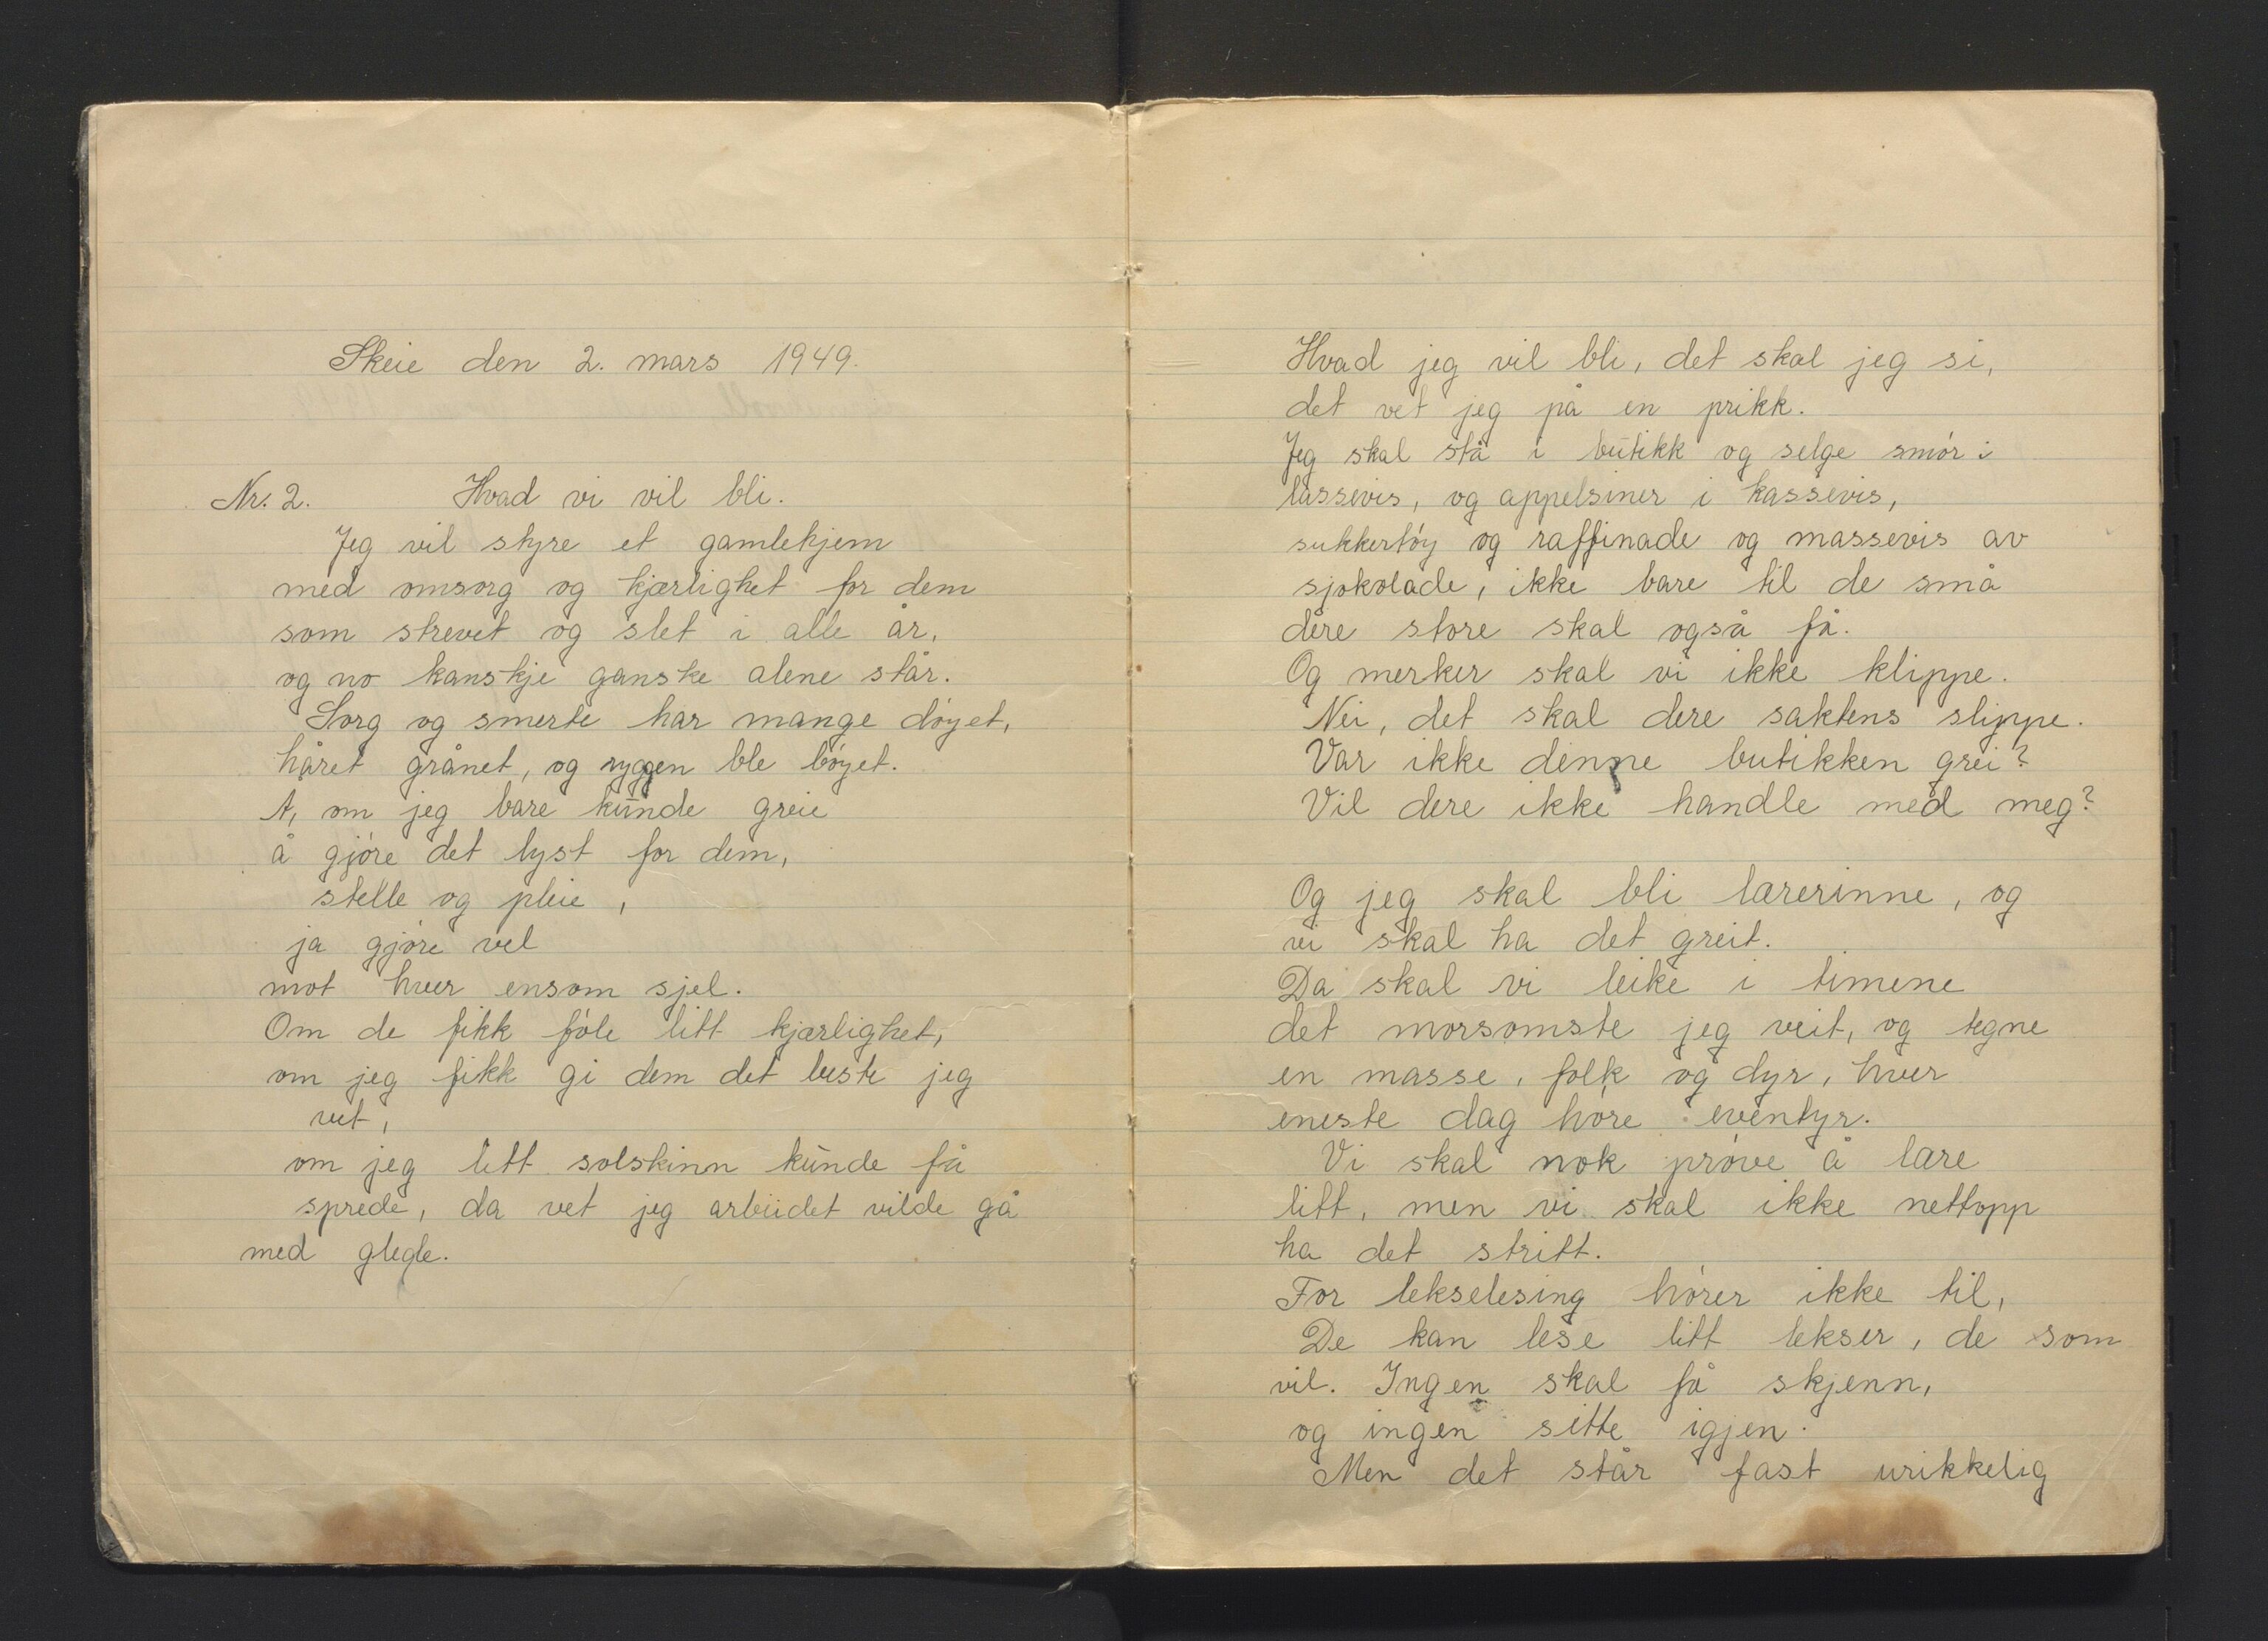 Skeie den 2. mars 1949.
Nr. 2. Hvad vi vil bli.
Jeg vil styre et gamlehjem
med omsorg og kjærlighet for dem
som strevet og slet i alle år,
og no kanskje ganske alene står.
Sorg og smerte har mange døyet,
håret grånet, og ryggen ble bøyet.
Å, om jeg bare kunde greie
å gjøre det lyst for dem,
stelle og pleie,
ja gjøre vel
mot hver ensom sjel.
Om de fikk føle litt kjærlighet,
om jeg fikk gi dem det beste jeg
vet,
om jeg litt solskinn kunde få
sprede, da vet jeg arbeidet vilde gå
med glede.
Hvad jeg vil bli, det skal jeg si,
det vet jeg på en prikk.
Jeg skal stå i butikk og selge smør i
lassevis, og appelsiner i kassevis,
sukkertøy og raffinade og massevis av
sjokolade, ikke bare til de små
dere store skal også få.
Og merker skal vi ikke klippe.
Nei, det skal dere saktens slippe.
Var ikke denne butikken grei?
Vil dere ikke handle med meg?
Og jeg skal bli lærerinne, og
vi skal ha det greit.
Da skal vi leike i timene
det morsomste jeg veit, og tegne
en masse, folk og dyr, hver
eneste dag høre eventyr.
Vi skal nok prøve å lære
litt, men vi skal ikke nettopp
ha det stritt.
For lekselesing hører ikke til,
De kan lese litt lekser, de som
vil. Ingen skal få skjenn,
og ingen sitte igjen.
Men det står fast urikkelig